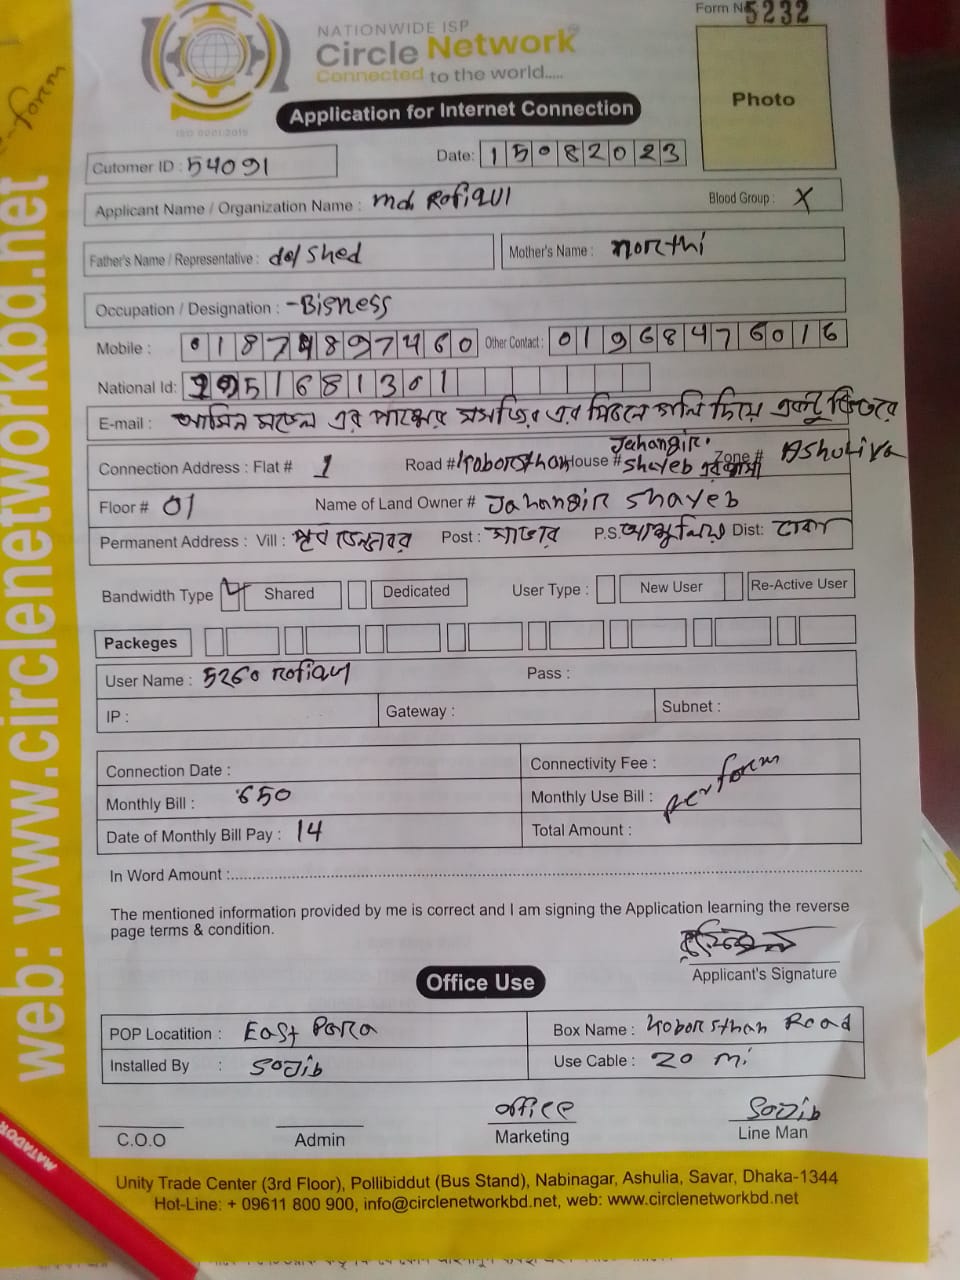 Form No 5232
NATIONWIDE ISP
Circle Network
Connected to the world.....
ISO 9001:2015
Application for Internet Connection
Photo
Cutomer ID : 54091
Date: 15082023
Applicant Name / Organization Name : md. Rofiqul
Blood Group : X
Father's Name / Representative : do/shed
Mother's Name : northi
Occupation / Designation : -Bisness
Mobile : 01874897460 Other Contact : 01968476016
National Id: 51681301
E-mail : এর পাশের এর দিয়ে একটু ভিতরে
Connection Address : Flat # 1 Road # Koborsthan House # Jahangir shayeb Zone # Ashuliya
Floor # 01 Name of Land Owner # Jahangir shayeb
Permanent Address : Vill : পূর্ব Post : সাভার P.S. আশুলিয়া Dist: ঢাকা
Bandwidth Type Shared Dedicated User Type : New User Re-Active User
Packeges
User Name : 5260 rofiqul Pass :
IP : Gateway : Subnet :
Connection Date : Connectivity Fee :
Monthly Bill : 650 Monthly Use Bill : per form
Date of Monthly Bill Pay : 14 Total Amount :
In Word Amount :
The mentioned information provided by me is correct and I am signing the Application learning the reverse
page terms & condition.
Applicant's Signature
Office Use
POP Locatition : East Para Box Name : Koborsthan Road
Installed By : Sojib Use Cable : 20 mi
office Sojib
C.O.O Admin Marketing Line Man
Unity Trade Center (3rd Floor), Pollibiddut (Bus Stand), Nabinagar, Ashulia, Savar, Dhaka-1344
Hot-Line: + 09611 800 900, info@circlenetworkbd.net, web: www.circlenetworkbd.net
web: www.circlenetworkbd.net
MATADOR